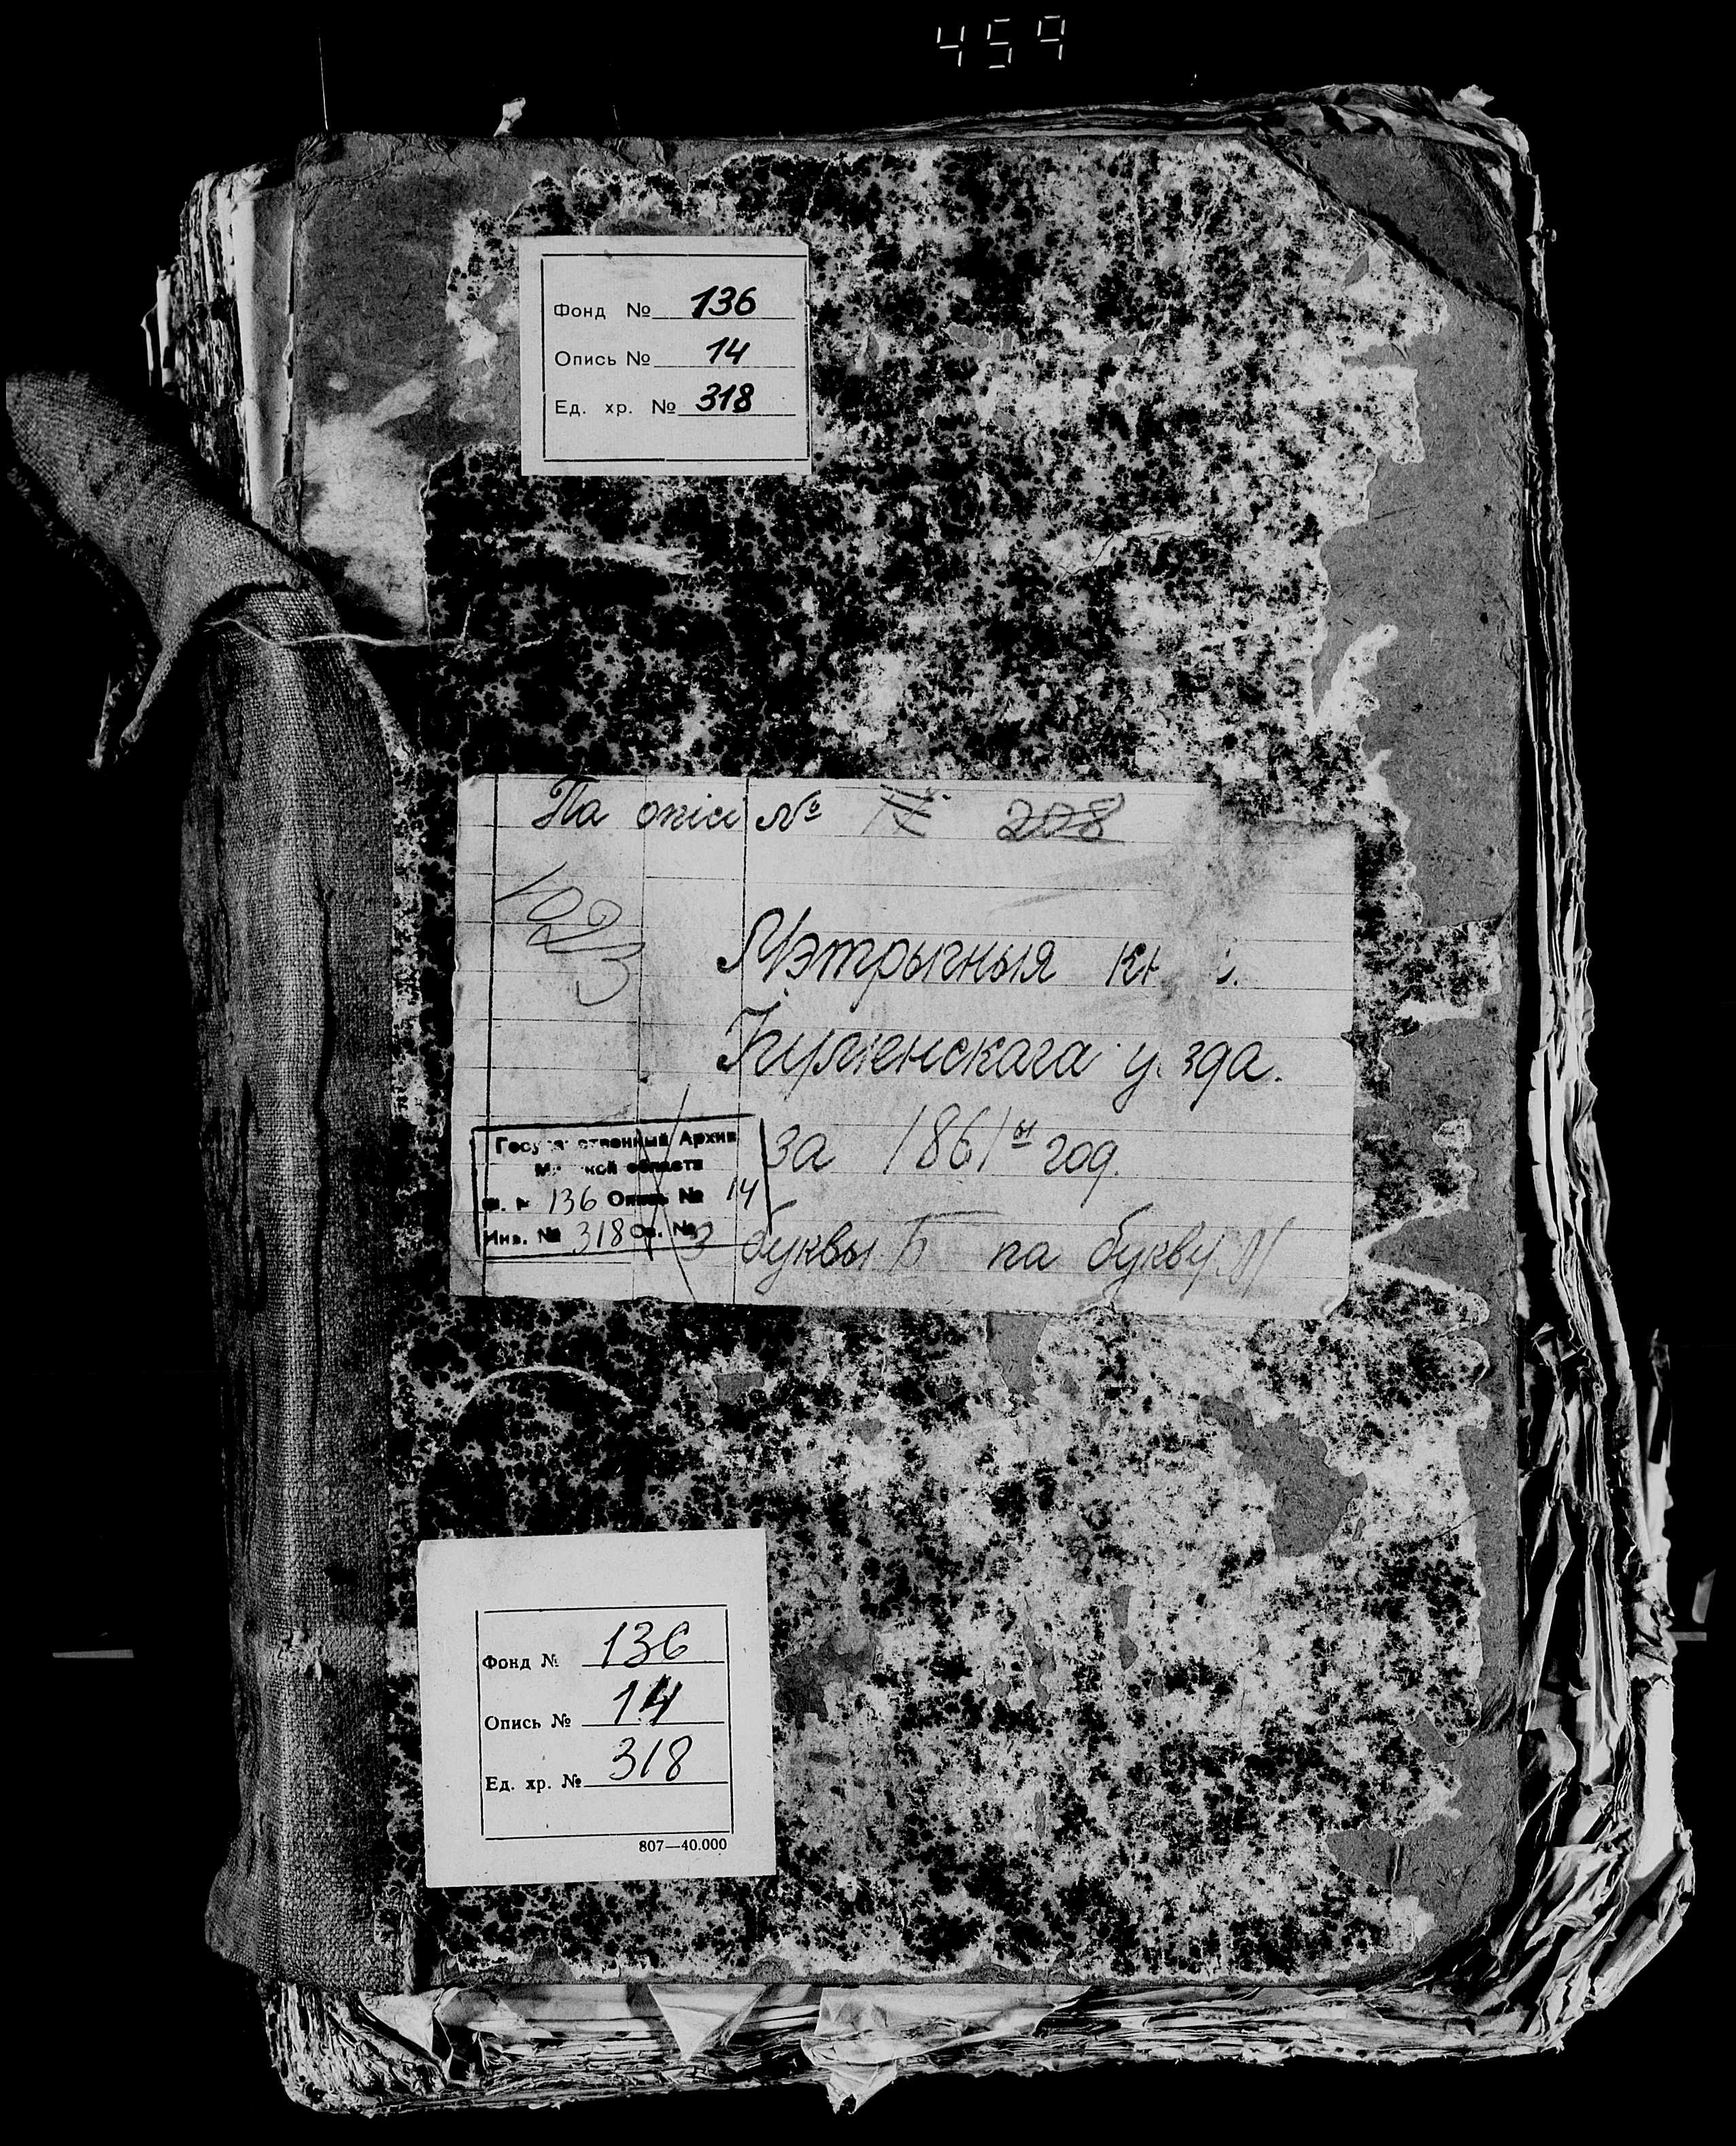 459
Фонд № 136
Опись № 14
Ед. хр. № 318
Па опісі № 208
1023
Мэтрычныя
Ігуменскага
за 1861ы год.
З буквы Б па букву М
Архив
области
136 Опись № 14
Инв. № 318 Св. №
Фонд № 136
Опись № 14
Ед. хр. № 318
807—40.000